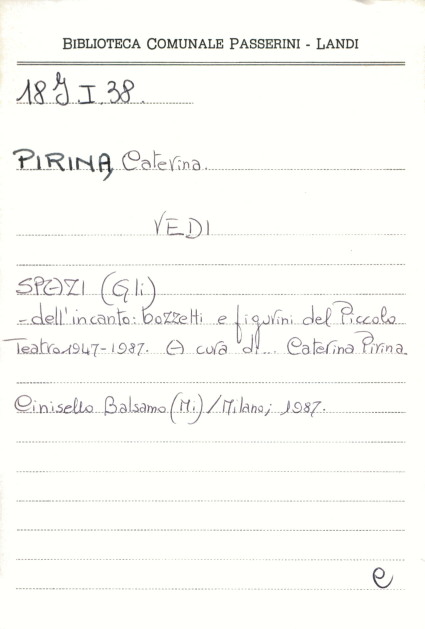 BIBLIOTECA COMUNALE PASSERINI - LANDI
18 J I 38.
PIRINA, Caterina.
VEDI
SPAZI (Gli)
-dell'incanto: bozzetti e figurini del Piccolo
Teatro 1947-1987. A cura di... Caterina Pirina.
Cinisello Balsamo (Mi) / Milano; 1987.
e